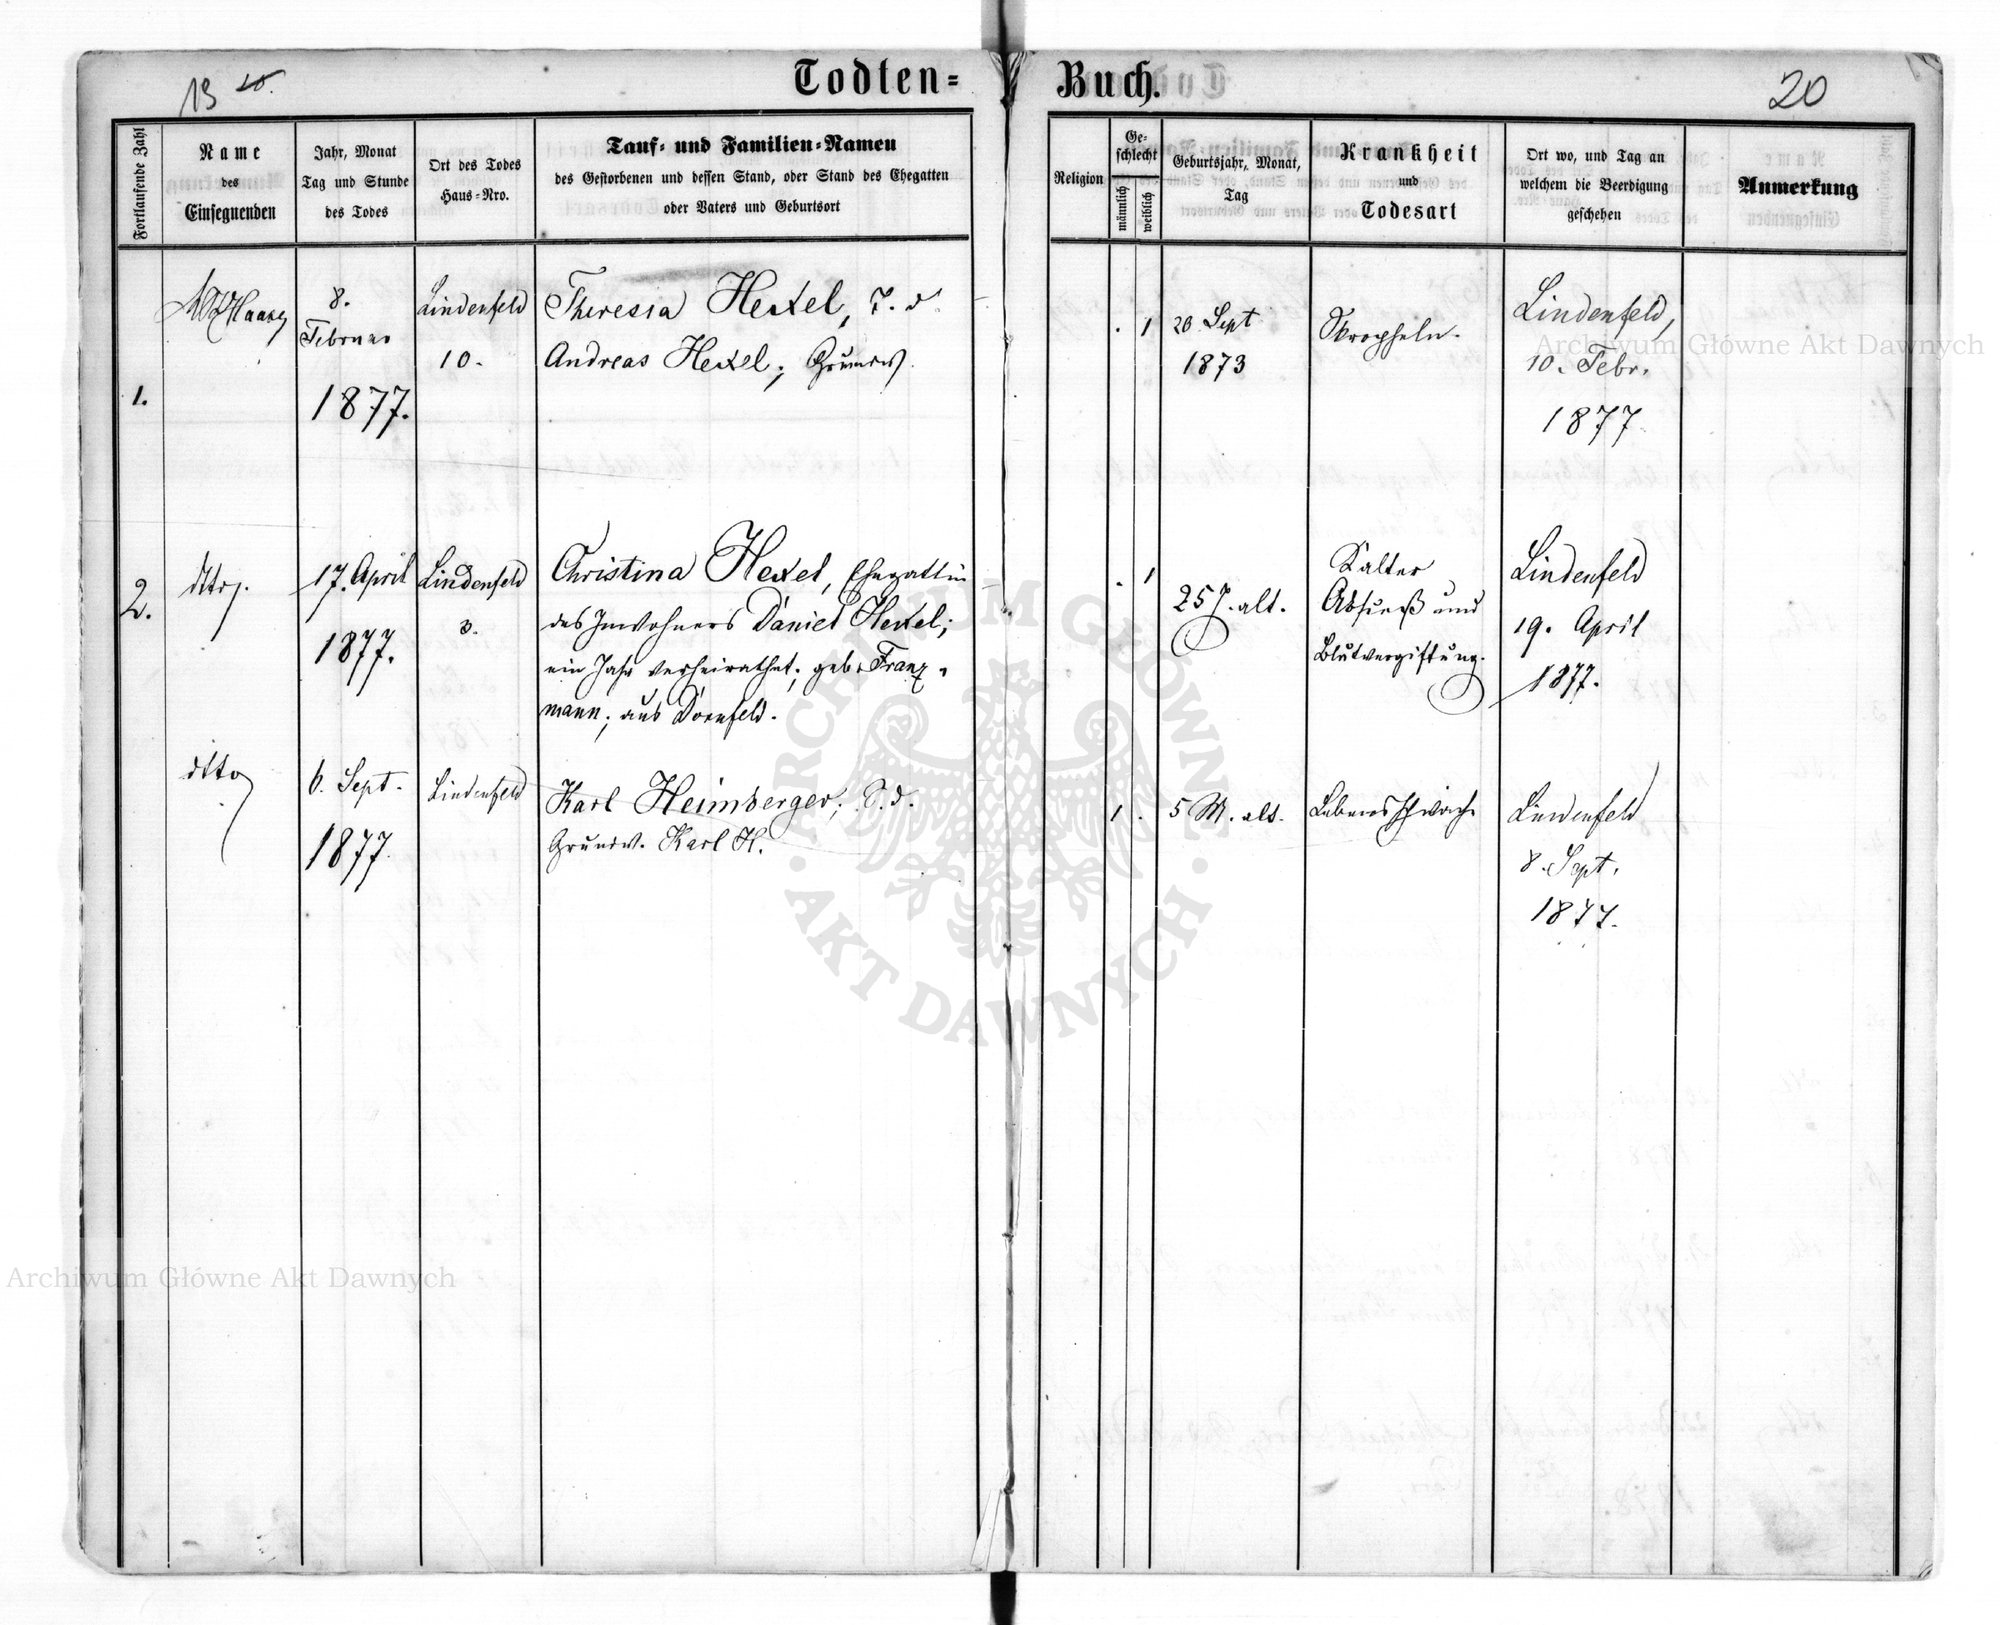 13
Todten-Buch.
20
Fortlaufende Zahl
Name
des
Einsegnenden
Jahr, Monat
Tag und Stunde
des Todes
Ort des Todes
Haus-Nro.
Tauf- und Familien-Namen
des Gestorbenen und dessen Stand, oder Stand des Ehegatten
oder Vaters und Geburtsort
Religion
Ge-
schlecht
männlich
weiblich
Geburtsjahr, Monat,
Tag
Krankheit
und
Todesart
Ort wo, und Tag an
welchem die Beerdigung
geschehen
Anmerkung
1.
8.
Februar
1877.
Lindenfeld
10.
Theresia Hexel, T. d.
Andreas Hexel; Grundw.
. 1
20 Sept
1873
Skropheln.
Lindenfeld,
10. Febr.
1877
2.
dtto.
17. April
1877.
Lindenfeld
3.
Christina Hexel, Ehegattin
des Inwohners Daniel Hexel;
ein Jahr verheirathet; geb. Franz-
mann; aus Dornfeld.
. 1
25 J. alt.
Kalter
Absceß und
Blutvergiftung.
Lindenfeld
19. April
1877.
dtto
6. Sept.
1877
Lindenfeld
Karl Heimberger; S. d.
Grundw. Karl H.
1 .
5 M. alt.
Lebensschwäche
Lindenfeld
8. Sept.
1877.
Archiwum Główne Akt Dawnych
Archiwum Główne Akt Dawnych
ARCHIWUM GŁÓWNE
AKT DAWNYCH